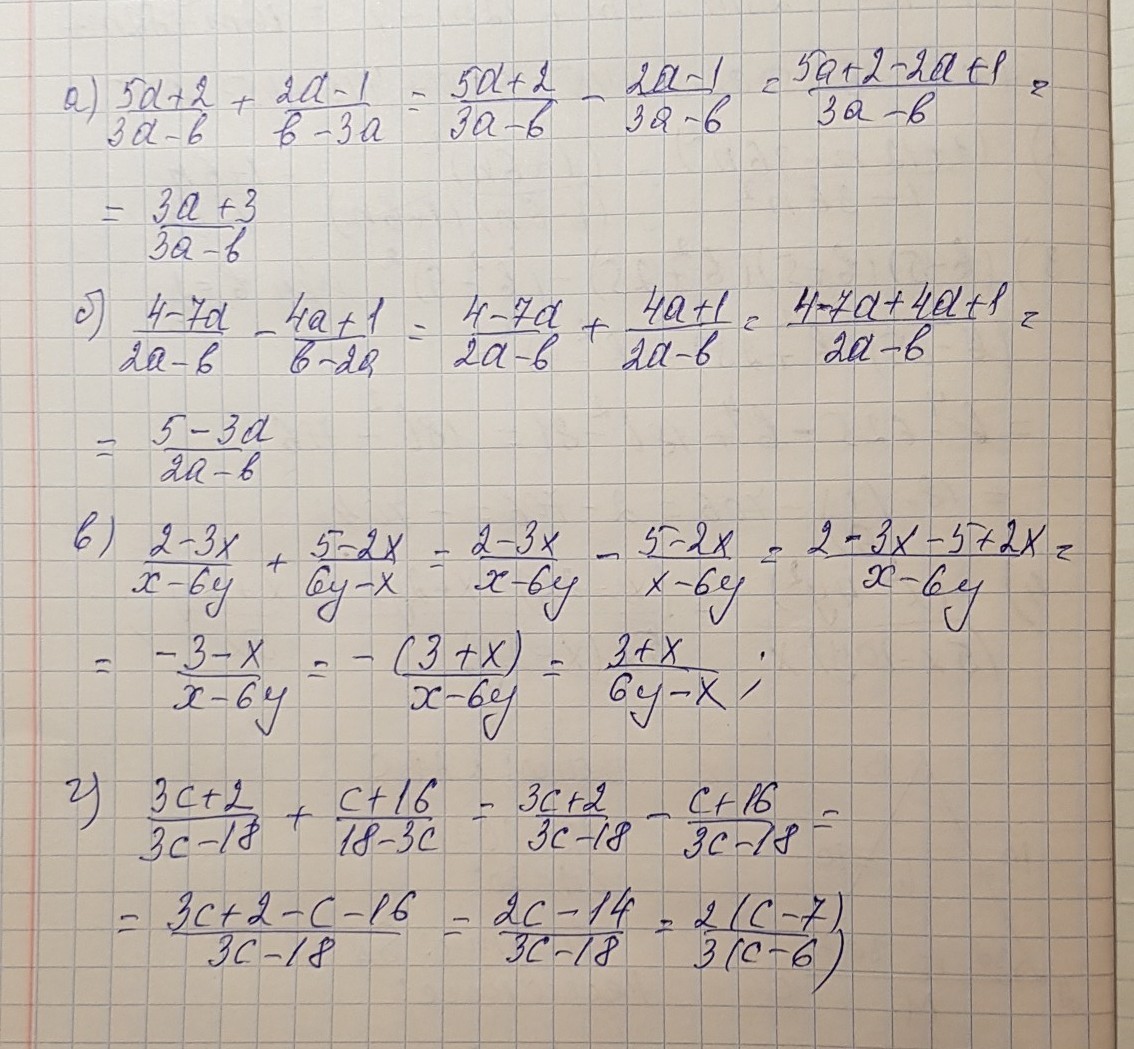 а) (5a+2)/(3a-b) + (2a-1)/(b-3a) = (5a+2)/(3a-b) - (2a-1)/(3a-b) = (5a+2-2a+1)/(3a-b) =
= (3a+3)/(3a-b)
б) (4-7a)/(2a-b) - (4a+1)/(b-2a) = (4-7a)/(2a-b) + (4a+1)/(2a-b) = (4-7a+4a+1)/(2a-b) =
= (5-3a)/(2a-b)
в) (2-3x)/(x-6y) + (5-2x)/(6y-x) = (2-3x)/(x-6y) - (5-2x)/(x-6y) = (2-3x-5+2x)/(x-6y) =
= (-3-x)/(x-6y) = -(3+x)/(x-6y) = (3+x)/(6y-x);
г) (3c+2)/(3c-18) + (c+16)/(18-3c) = (3c+2)/(3c-18) - (c+16)/(3c-18) =
= (3c+2-c-16)/(3c-18) = (2c-14)/(3c-18) = 2(c-7)/3(c-6)